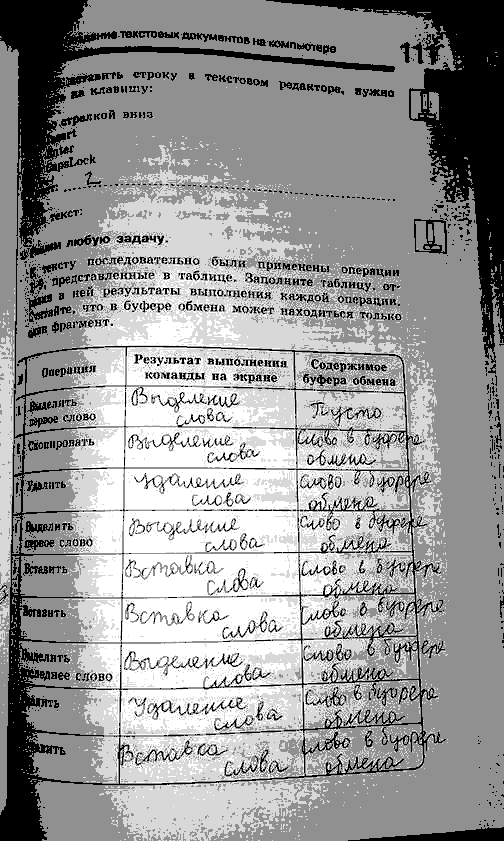 текстовых документов на компьютере 111
вставить строку в текстовом редакторе, нужно
на клавишу:
стрелкой вниз
CapsLock
2
текст:
любую задачу.
тексту последовательно были применены операции
представленные в таблице. Заполните таблицу, от-
в ней результаты выполнения каждой операции.
что в буфере обмена может находиться только
один фрагмент.
Операция Результат выполнения команды на экране Содержимое буфера обмена
Выделить первое слово Выделение слова Пусто
Скопировать Выделение слова Слово в буфере обмена
Удалить Удаление слова Слово в буфере обмена
Выделить первое слово Выделение слова Слово в буфере обмена
Вставить Вставка слова Слово в буфере обмена
Вставить Вставка слова Слово в буфере обмена
Выделить последнее слово Выделение слова Слово в буфере обмена
Удаление слова Слово в буфере обмена
Вставка слова Слово в буфере обмена